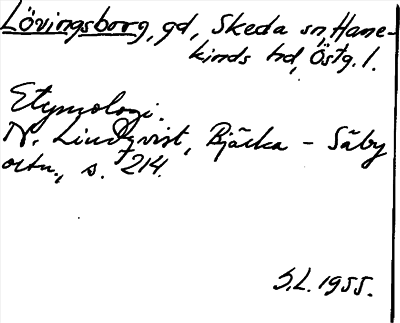 Lövingsborg, gd, Skeda sn, Hane-
kinds hd, Östg. l.
Etymologi.
N. Lindqvist, Bjärka - Säby
ortn., s. 214.
S.L. 1955.